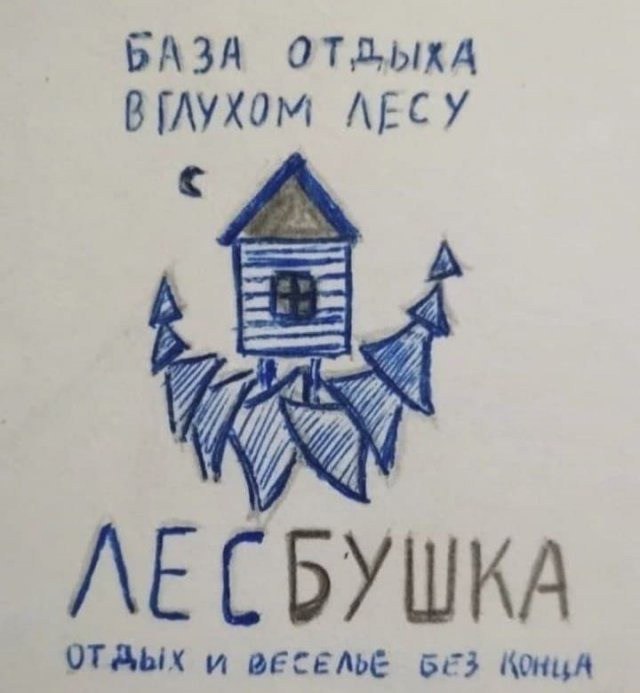 БАЗА ОТДЫХА
В ГЛУХОМ ЛЕСУ
ЛЕСБУШКА
ОТДЫХ И ВЕСЕЛЬЕ БЕЗ КОНЦА